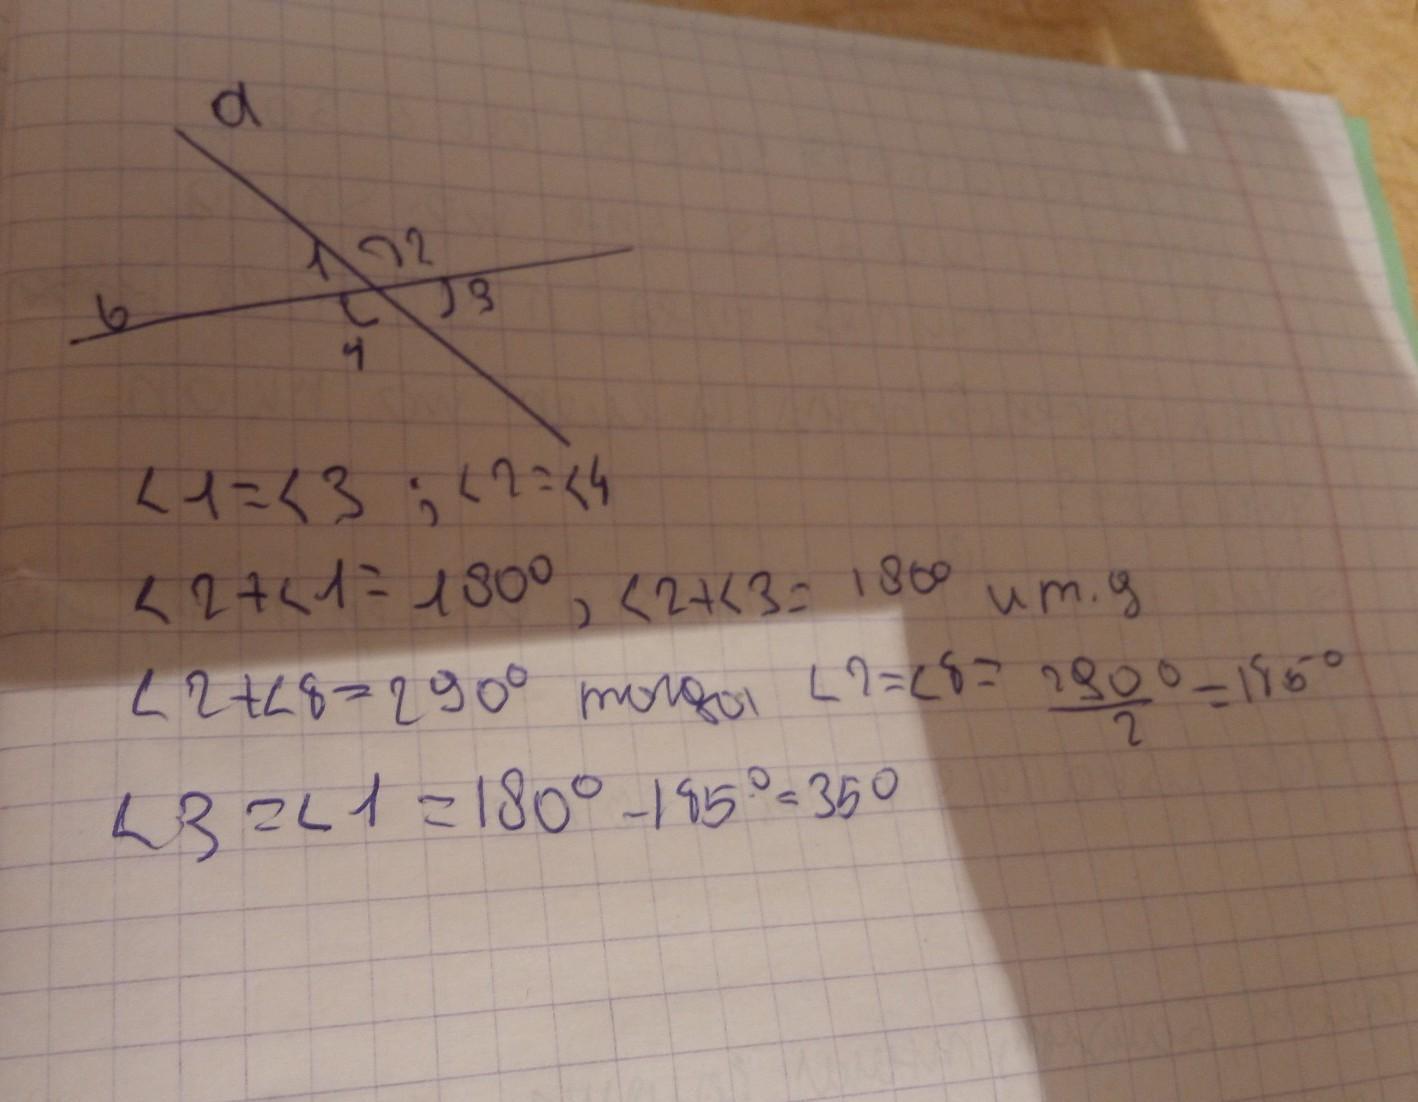 a
1 2
b 3
4
<1=<3 ; <2=<4
<2+<1=180°, <2+<3= 180° и т.д
<2+<8=290° тогда <2=<8= 290°/2 =145°
<3 =<1 =180° -145°=35°